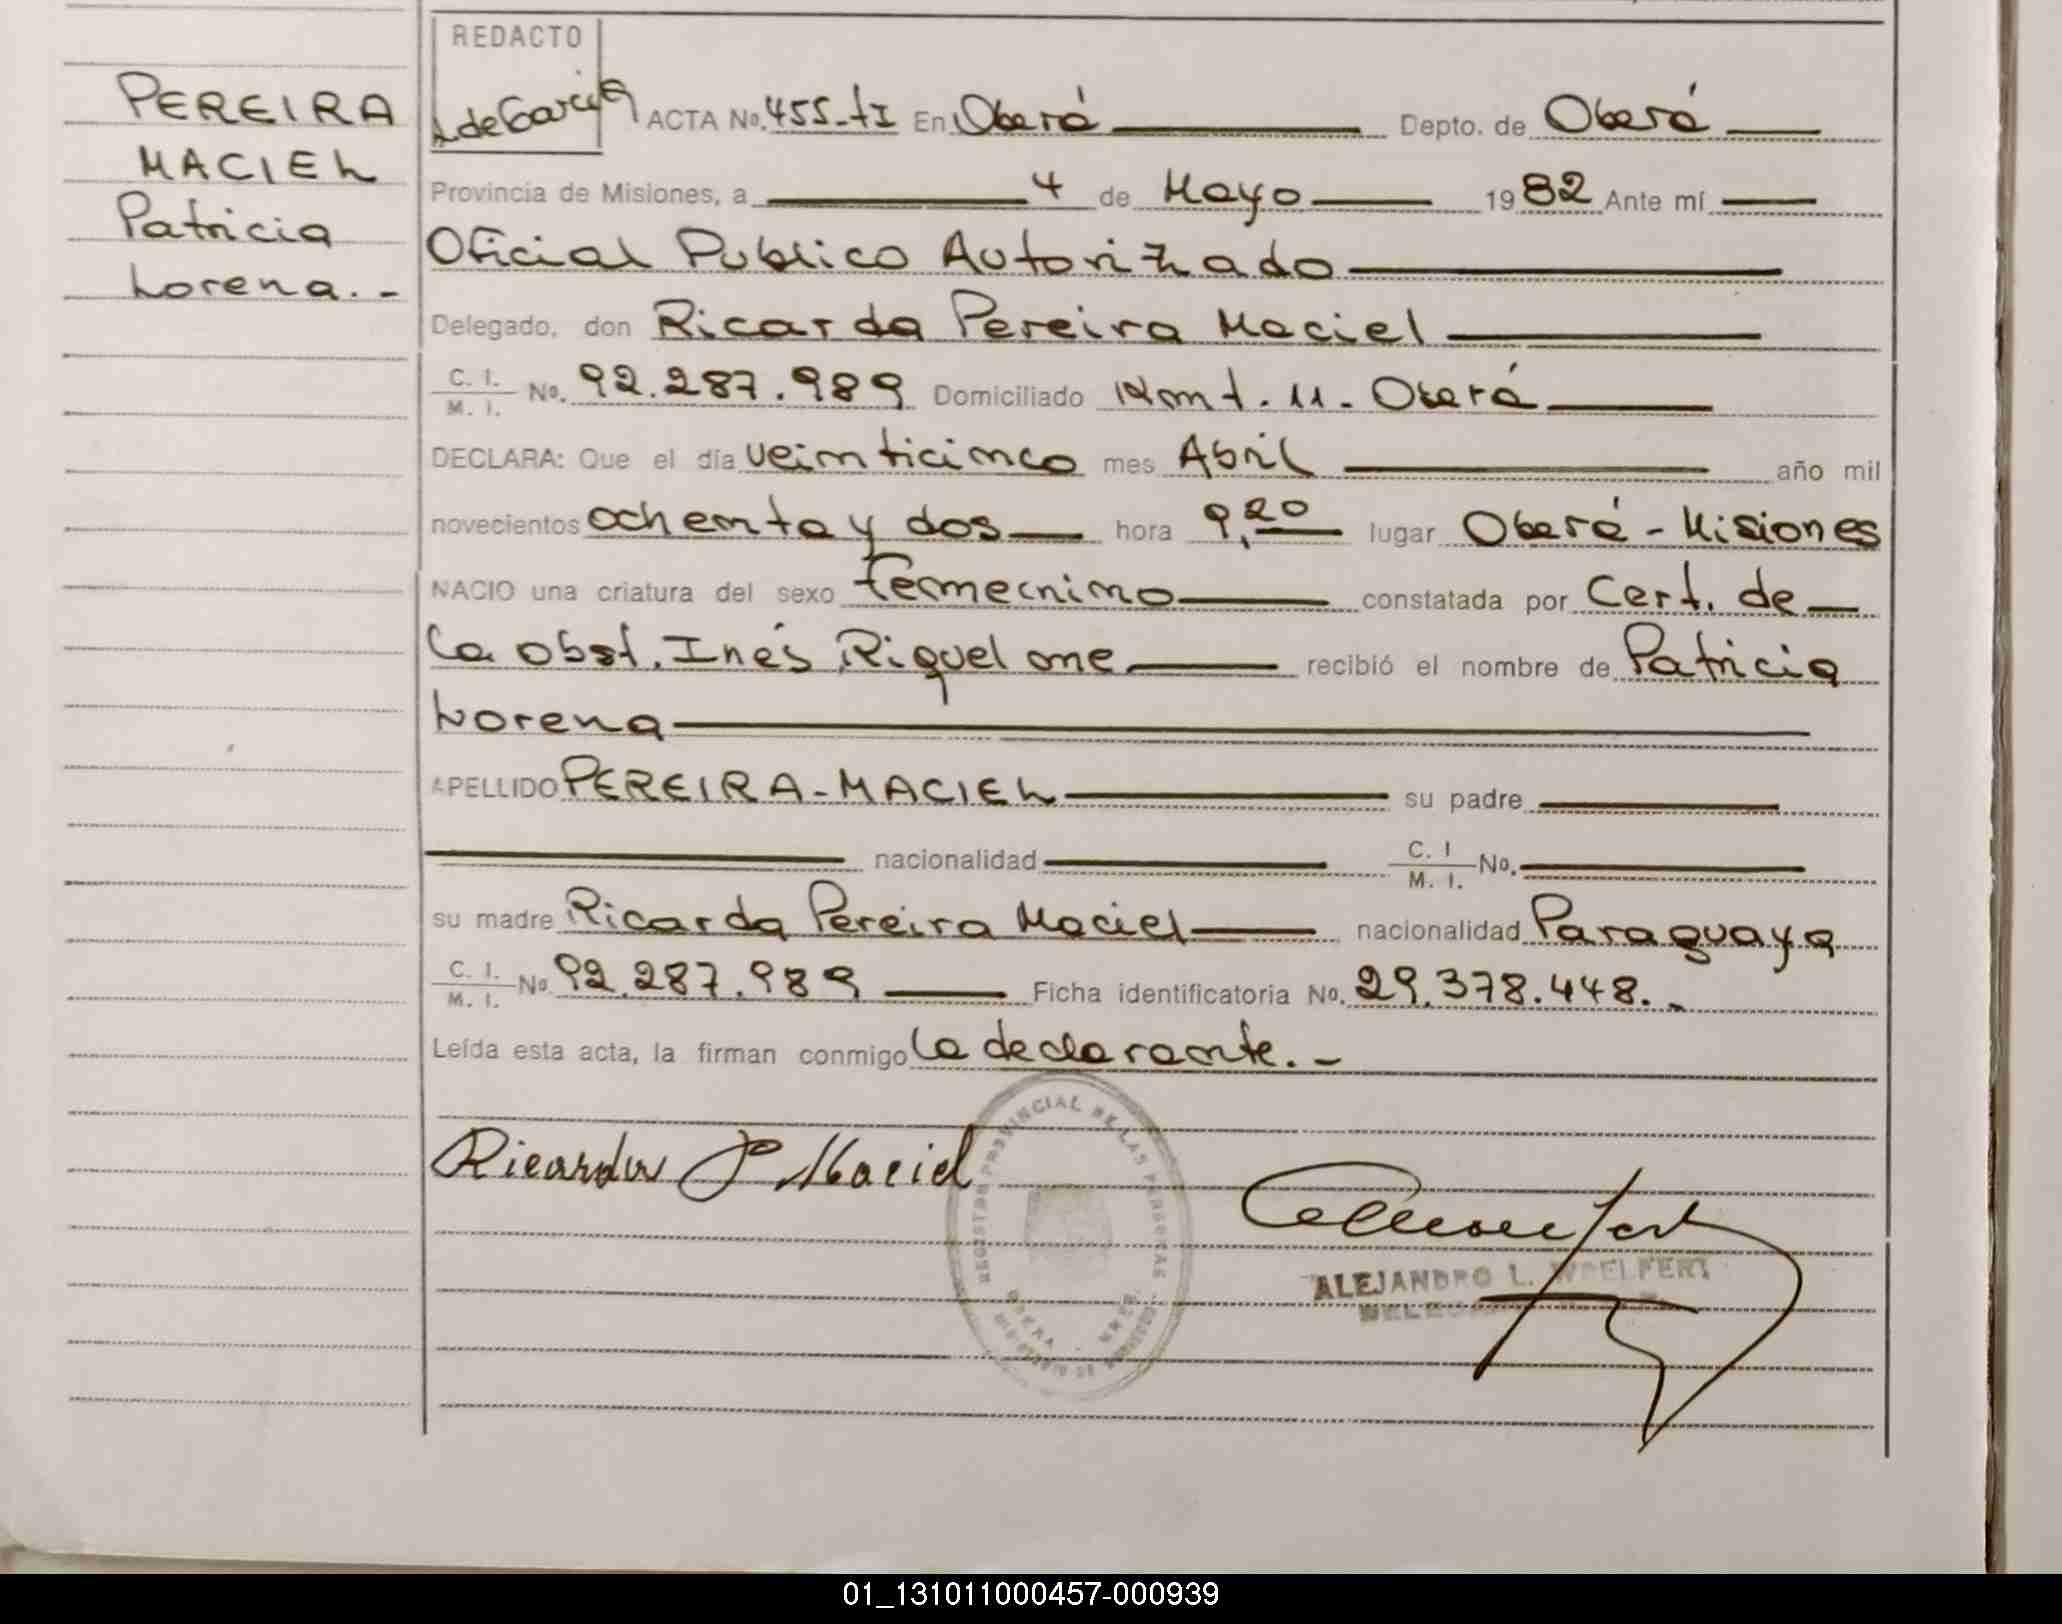 REDACTO
A de Garcia
PEREIRA
MACIEL
Patricia
Lorena.-
ACTA No. 455-tI En Oberá Depto. de Oberá
Provincia de Misiones, a 4 de Mayo 1982 Ante mí
Oficial Publico Autorizado
Delegado, don Ricarda Pereira Maciel
C. I. / M. I. No. 92.287.989 Domiciliado Kmt. 11 - Oberá
DECLARA: Que el día veinticinco mes Abril año mil
novecientos ochenta y dos hora 9,20 lugar Oberá - Misiones
NACIO una criatura del sexo femenino constatada por Cert. de
la obst. Inés Riquelme recibió el nombre de Patricia
Lorena
APELLIDO PEREIRA-MACIEL su padre
nacionalidad C. I / M. I. No.
su madre Ricarda Pereira Maciel nacionalidad Paraguaya
C. I. / M. I. No 92.287.989 Ficha identificatoria No. 29.378.448.-
Leída esta acta, la firman conmigo la declarante.-
Ricarda P Maciel
REGISTRO PROVINCIAL DE LAS PERSONAS
OBERA
MISIONES
ALEJANDRO L. WOELFERT
01_131011000457-000939